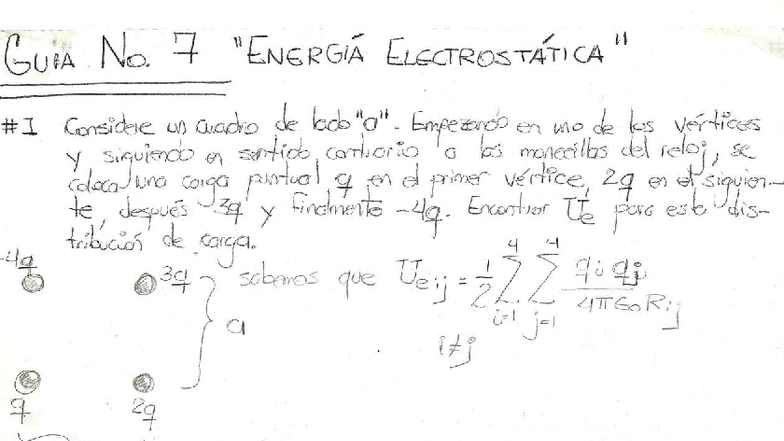 GUIA No. 7 "ENERGÍA ELECTROSTÁTICA"
#1 Considere un cuadro de lado "a". Empezando en uno de los vértices
y siguiendo en sentido contrario a las manecillas del reloj, se
coloca una carga puntual q en el primer vértice, 2q en el siguien-
te, después 3q y finalmente -4q. Encontrar Ue para esta dis-
tribución de carga.
-4q 3q sabemos que Ue ij = 1/2 4∑i=1 4∑j=1 qi qj / 4πε0 Rij
a i≠j
q 2q